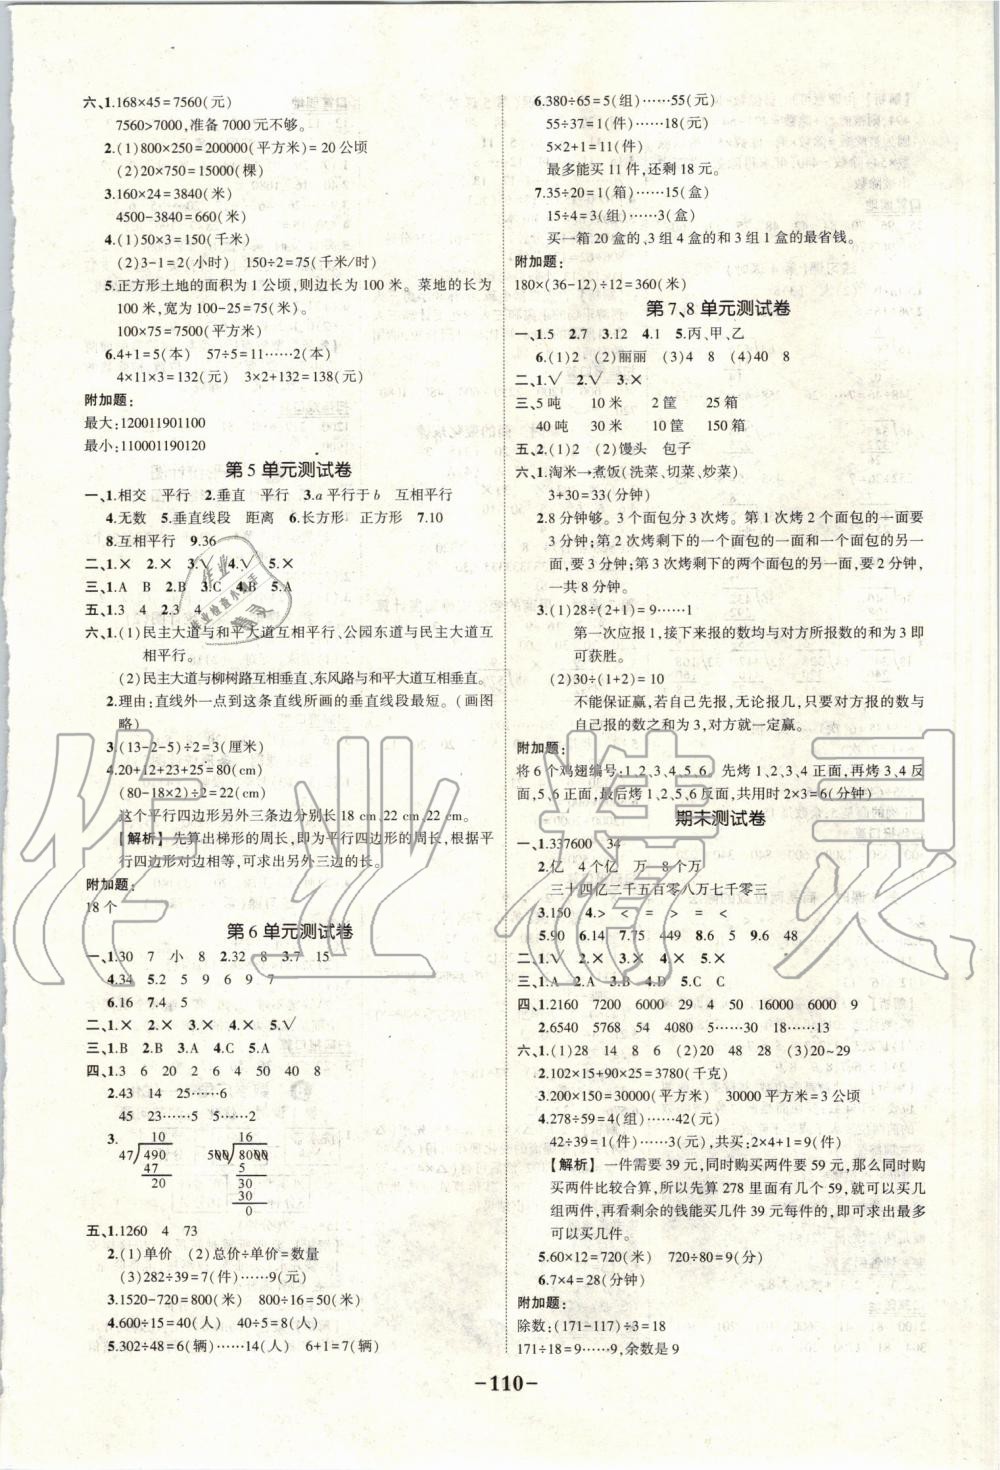 六、1.168×45=7560(元)
7560>7000,准备 7000 元不够。
2.(1)800×250=200000(平方米)=20 公顷
(2)20×750=15000(棵)
3.160×24=3840(米)
4500-3840=660(米)
4.(1)50×3=150(千米)
(2)3-1=2(小时) 150÷2=75(千米/时)
5.正方形土地的面积为 1 公顷,则边长为 100 米。菜地的长为
100 米,宽为 100-25=75(米)。
100×75=7500(平方米)
6.4+1=5(本) 57÷5=11……2(本)
4×11×3=132(元) 3×2+132=138(元)
附加题:
最大:120011901100
最小:110001190120
第 5 单元测试卷
一、1.相交 平行 2.垂直 平行 3.a 平行于 b 互相平行
4.无数 5.垂直线段 距离 6.长方形 正方形 7.10
8.互相平行 9.36
二、1.× 2.× 3.√ 4.√ 5.×
三、1.A B 2.B 3.C 4.B 5.A
五、1.3 4 2.3 4
六、1.(1)民主大道与和平大道互相平行、公园东道与民主大道互
相平行。
(2)民主大道与柳树路互相垂直、东风路与和平大道互相垂直。
2.理由:直线外一点到这条直线所画的垂直线段最短。(画图
略)
3.(13-2-5)÷2=3(厘米)
4.20+12+23+25=80(cm)
(80-18×2)÷2=22(cm)
这个平行四边形另外三条边分别长 18 cm,22 cm,22 cm。
【解析】先算出梯形的周长,即为平行四边形的周长,根据平
行四边形对边相等,可求出另外三边的长。
附加题:
18 个
第 6 单元测试卷
一、1.30 7 小 8 2.32 8 3.7 15
4.34 5.2 5 9 6 9 7
6.16 7.4 5
二、1.× 2.× 3.× 4.× 5.√
三、1.B 2.B 3.A 4.C 5.A
四、1.3 6 20 2 6 4 50 40 8
2.43 14 25……6
45 23……5 5……2
3. 10 16
47 490 500 8000
47 5
20 30
30
0
五、1.1260 4 73
2.(1)单价 (2)总价÷单价=数量
(3)282÷39=7(件)……9(元)
3.1520-720=800(米) 800÷16=50(米)
4.600÷15=40(人) 40÷5=8(人)
5.302÷48=6(辆)……14(人) 6+1=7(辆)
6.380÷65=5(组)……55(元)
55÷37=1(件)……18(元)
5×2+1=11(件)
最多能买 11 件,还剩 18 元。
7.35÷20=1(箱)……15(盒)
15÷4=3(组)……3(盒)
买一箱 20 盒的,3 组 4 盒的和 3 组 1 盒的最省钱。
附加题:
180×(36-12)÷12=360(米)
第 7、8 单元测试卷
一、1.5 2.7 3.12 4.1 5.丙、甲、乙
6.(1)2 (2)丽丽 (3)4 8 (4)40 8
二、1.√ 2.√ 3.×
三、5 吨 10 米 2 筐 25 箱
40 吨 30 米 10 筐 150 箱
五、(1)2 (2)馒头 包子
六、1.淘米→煮饭(洗菜、切菜、炒菜)
3+30=33(分钟)
2.8 分钟够。3 个面包分 3 次烤。第 1 次烤 2 个面包的一面要
3 分钟;第 2 次烤剩下的一个面包的一面和一个面包的另一面,
要 3 分钟;第 3 次烤剩下的两个面包的另一面,要 2 分钟,
一共 8 分钟。
3.(1)28÷(2+1)=9……1
第一次应报 1,接下来报的数均与对方所报数的和为 3 即
可获胜。
(2)30÷(1+2)=10
不能保证赢,若自己先报,无论报几,只要对方报的数与
自己报的数之和为 3,对方就一定赢。
附加题:
将 6 个鸡翅编号:1、2、3、4、5、6。先烤 1、2、3、4 正面,再烤 3、4 反
面、5、6 正面,最后烤 1、2、5、6 反面,共用时 2×3=6(分钟)
期末测试卷
一、1.337600 34
2.亿 4 个亿 万 8 个万
三十四亿二千五百零八万七千零三
3.150 4.> < = > = <
5.90 6.14 7.75 449 8.6 5 9.6 48
二、1.√ 2.× 3.× 4.× 5.×
三、1.A 2.A 3.B 4.D 5.C C
四、1.2160 7200 6000 29 4 50 16000 6000 9
2.6540 5768 54 4080 5……30 18……13
六、1.(1)28 14 8 6 (2)20 48 28 (3)20~29
2.102×15+90×25=3780(千克)
3.200×150=30000(平方米) 30000 平方米=3 公顷
4.278÷59=4(组)……42(元)
42÷39=1(件)……3(元),共买:2×4+1=9(件)
【解析】一件需要 39 元,同时购买两件要 59 元,那么同时购
买两件比较合算,所以先算 278 里面有几个 59,就可以买几
组两件,再看剩余的钱能买几件 39 元每件的,即可求出最多
可以买几件。
5.60×12=720(米) 720÷80=9(分)
6.7×4=28(分钟)
附加题:
除数:(171-117)÷3=18
171÷18=9……9,余数是 9
-110-
作业精灵